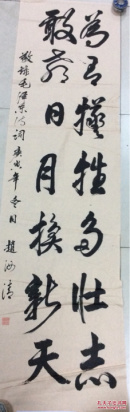 为有牺牲多壮志
敢教日月换新天
敬录毛泽东诗词 庚寅年冬日 赵